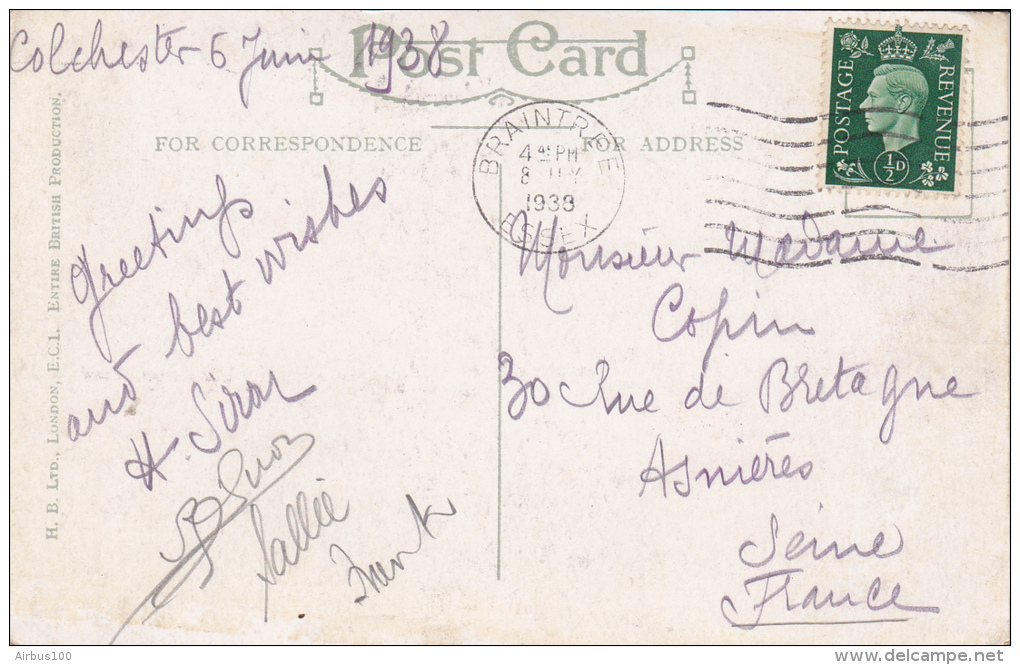 Colchester 6 Juin 1938
Post Card
FOR CORRESPONDENCE
FOR ADDRESS
BRAINTREE
4 PM
8
1938
ESSEX
POSTAGE REVENUE
½D
Greetings
and best wishes
H. Siron
Sallée
Monsieur Madame
Copin
30 Rue de Bretagne
Asnières
Seine
France
H. B. LTD., LONDON, E.C.1. ENTIRE BRITISH PRODUCTION.
Airbus100
delcampe.net